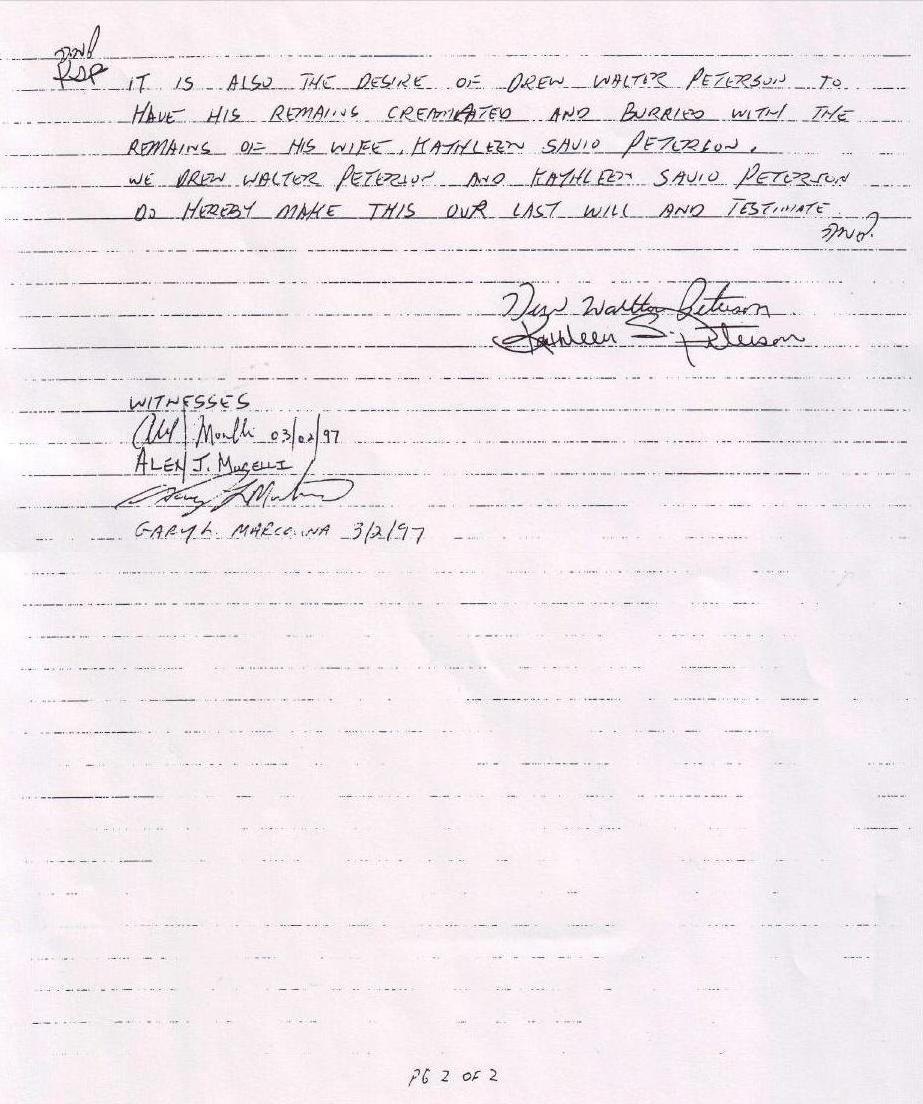 IT IS ALSO THE DESIRE OF DREW WALTER PETERSON TO
HAVE HIS REMAINS CREAMATED AND BURRIED WITH THE
REMAINS OF HIS WIFE, KATHLEEN SAVIO PETERSON.
WE DREW WALTER PETERSON AND KATHLEEN SAVIO PETERSON
DO HEREBY MAKE THIS OUR LAST WILL AND TESTIMATE
Drew Walter Peterson
Kathleen S. Peterson
WITNESSES
03/02/97
ALEX J. MORELLI
GARY L. 3/2/97
PG 2 OF 2